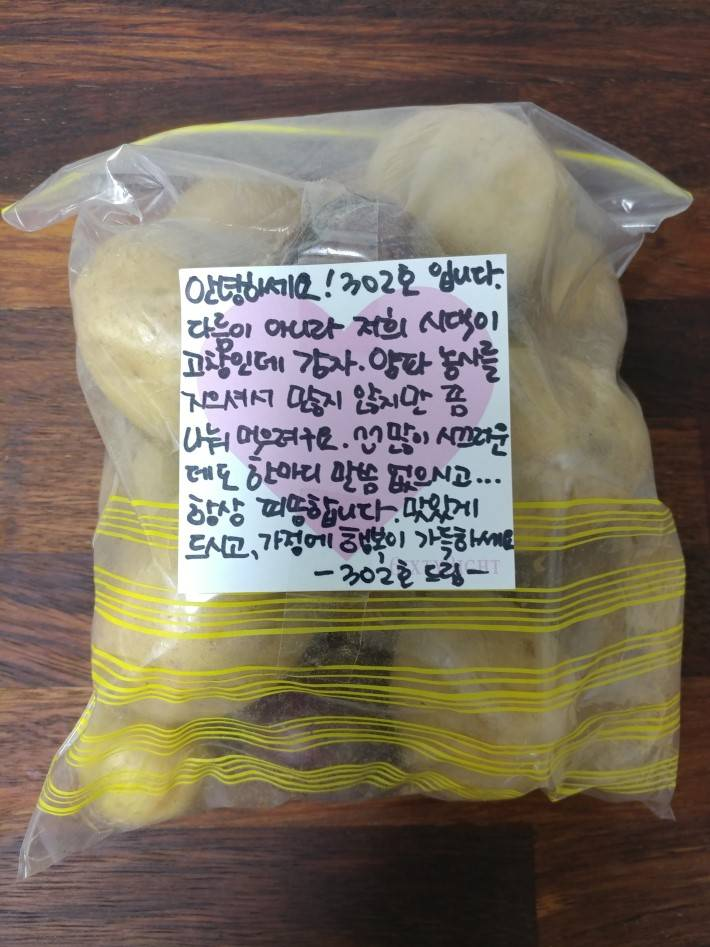 안녕하세요! 302호 입니다.
다름이 아니라 저희 시댁이
고창인데 감자.양파 농사를
지으셔서 많지 않지만 쫌
나눠 먹으려구요. 넘 많이 시끄러운
데도 한마디 말씀 없으시고...
항상 찌쯩합니다. 맛있게
드시고, 가정에 행복이 가득하세요
-302호 드림-